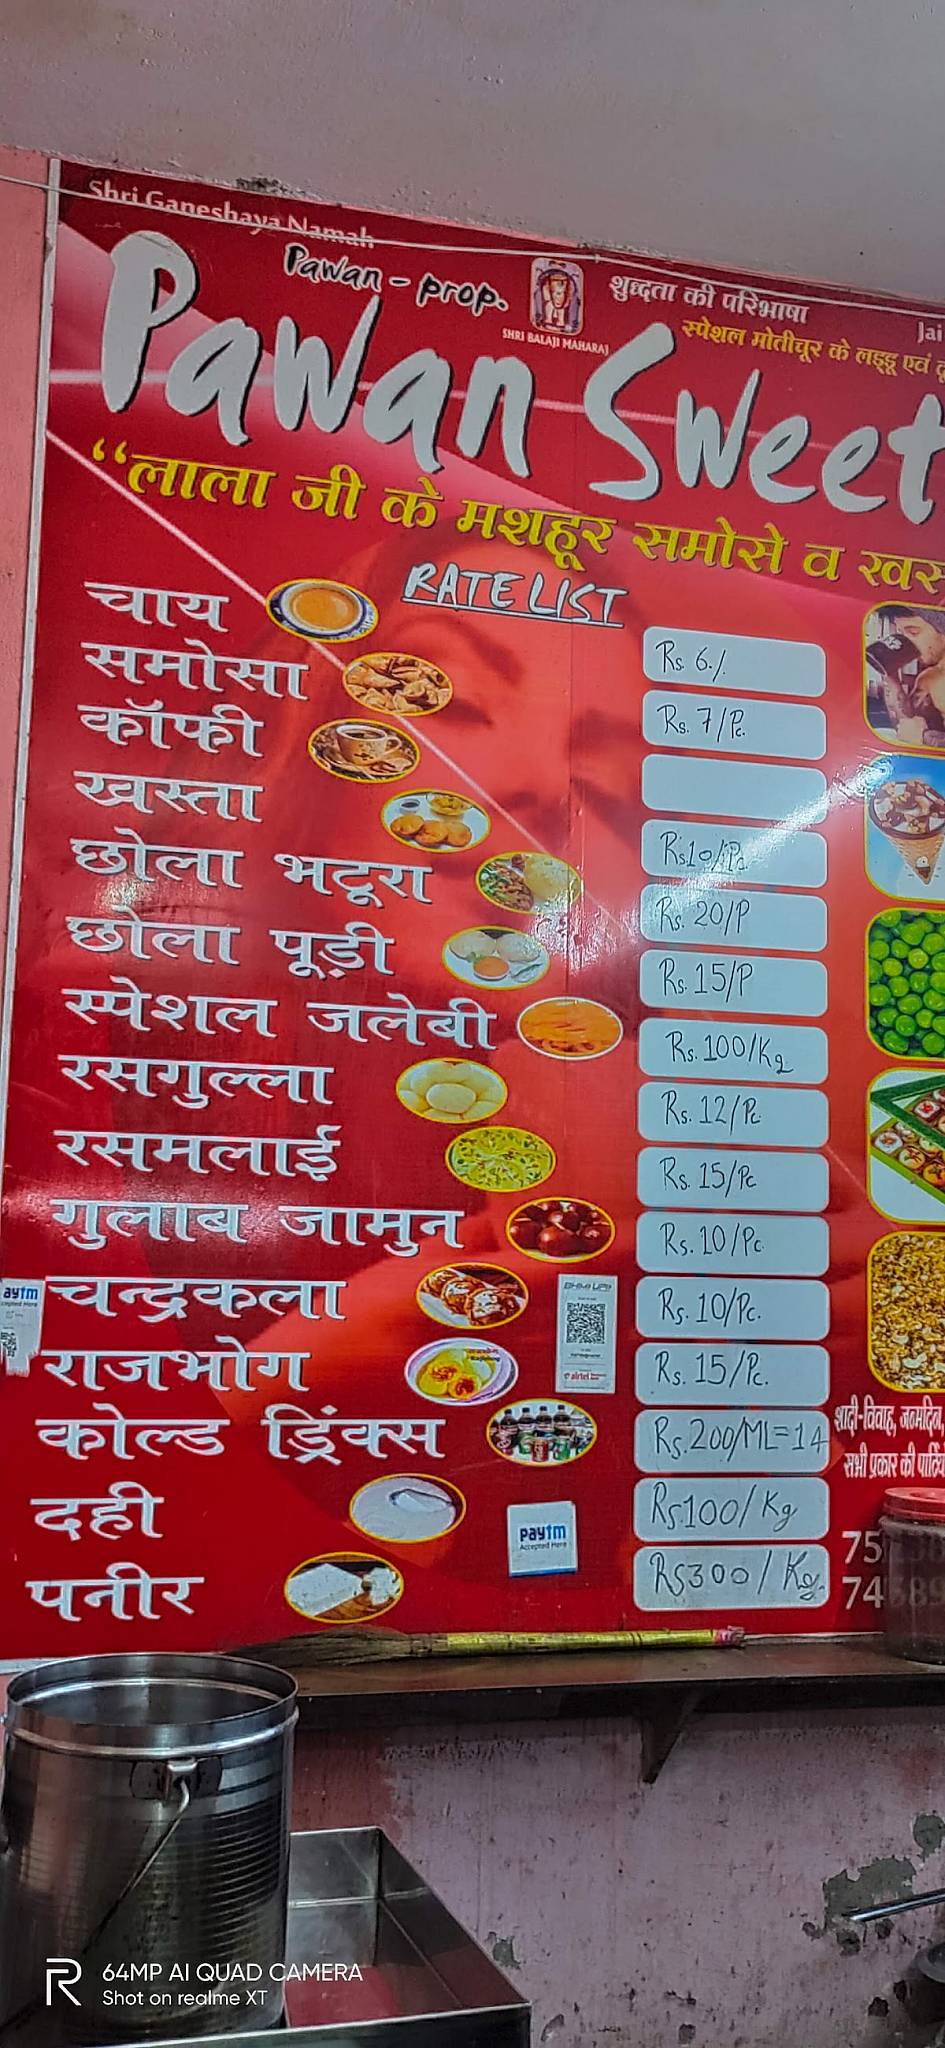 Shri Ganeshaya Namah
Pawan - prop.
SHRI BALAJI MAHARAJ
शुध्दता की परिभाषा
Jai
स्पेशल मोतीचूर के लड्डू एवं
Pawan Sweet
“लाला जी के मशहूर समोसे व खस
RATE LIST
चाय Rs. 6./.
समोसा Rs. 7/Pc.
कॉफी
खस्ता Rs10/Pc
छोला भटूरा Rs. 20/P
छोला पूड़ी Rs. 15/P
स्पेशल जलेबी Rs. 100/Kg
रसगुल्ला Rs. 12/Pc
रसमलाई Rs. 15/Pc
गुलाब जामुन Rs. 10/Pc.
चन्द्रकला Rs. 10/Pc.
राजभोग Rs. 15/Pc.
कोल्ड ड्रिंक्स Rs. 200/ML=14
दही Rs.100/Kg
पनीर Rs300/Kg.
BHIM UPI
airtel
aytm
paytm
Accepted Here
शादी-विवाह, जन्मदिन,
सभी प्रकार की
75
74
64MP AI QUAD CAMERA
Shot on realme XT